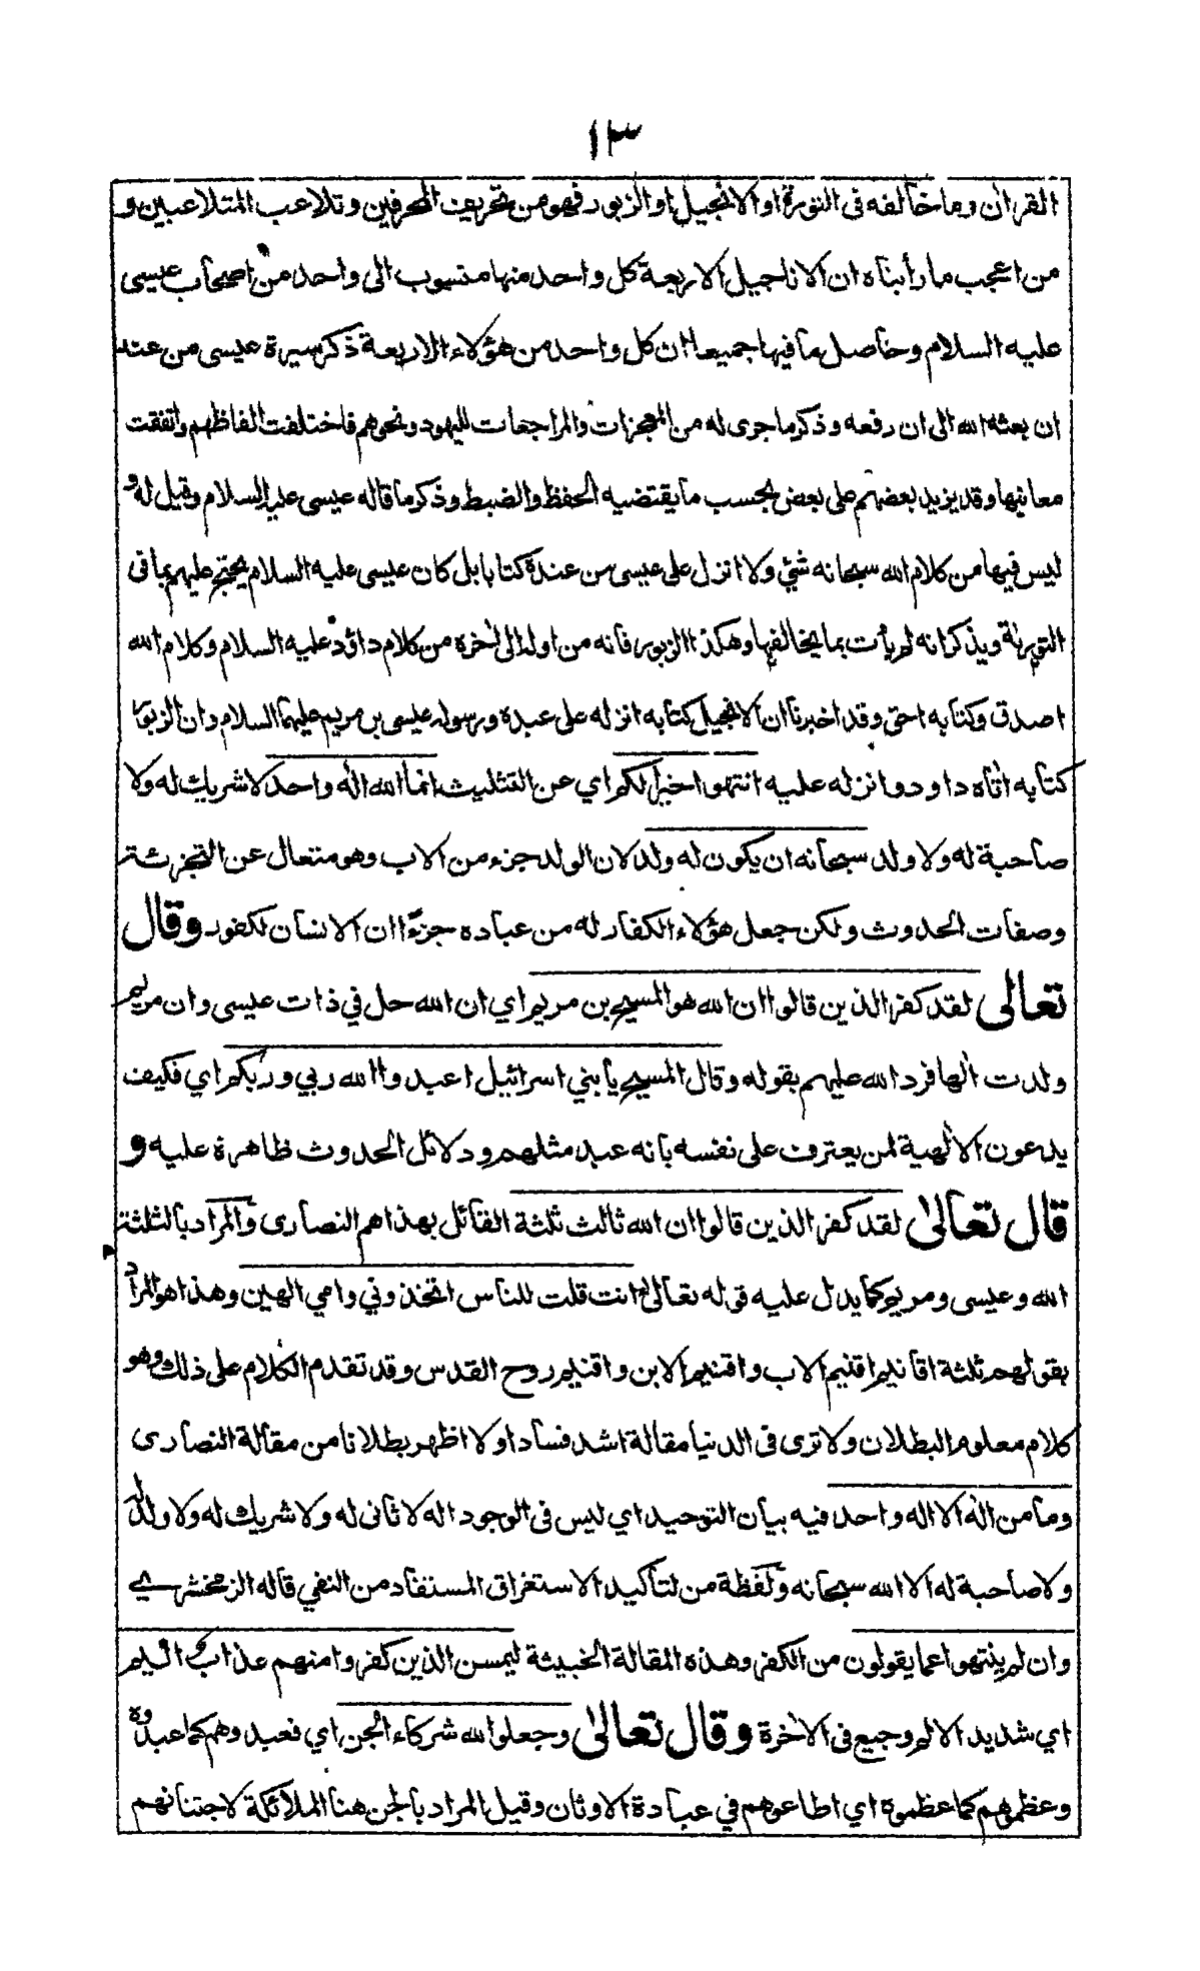 ١٣
القرآن وما خالفه فى التورىة او الانجيل او الزبور فهو من تحريف المحرفين وتلاعب المتلاعبين و
من اعجب ما رأيناه ان الاناجيل الاربعة كل واحد منها منسوب الى واحد من اصحاب عيسى
عليه السلام وحاصل ما فيها جميعا ان كل واحد من هؤلاء الاربعة ذكر سيرة عيسى من عند
ان بعثه الله الى ان رفعه وذكر ما جرى له من المعجزات والمراجعات لليهود ونحوهم فاختلفت الفاظهم واتفقت
معانيها وقد يزيد بعضهم على بعض بحسب ما يقتضيه الحفظ والضبط وذكر ما قاله عيسى عليه السلام وقيل له و
ليس فيها من كلام الله سبحانه شئ ولا انزل على عيسى من عنده كتابا بل كان عيسى عليه السلام يحتج عليهم بما فى
التورىة ويذكر انه لم يأت بما يخالفها وهكذا الزبور فانه من اوله الى اخره من كلام داؤد عليه السلام وكلام الله
اصدق وكتابه احق وقد اخبرنا ان الانجيل كتابه انزله على عبده ورسوله عيسى بن مريم عليهما السلام وان الزبور
كتابه اتاه داود وانزله عليه انتهوا خيرا لكم اي عن التثليث انما الله اله واحد لا شريك له ولا
صاحبة له ولا ولد سبحانه ان يكون له ولد لان الولد جزء من الاب وهو متعال عن التجزئة
وصفات الحدوث ولكن جعل هؤلاء الكفار له من عباده جزءا ان الانسان لكفور وقال
تعالى لقد كفر الذين قالوا ان الله هو المسيح بن مريم اي ان الله حل في ذات عيسى وان مريم
ولدت الها فرد الله عليهم بقوله وقال المسيح يا بني اسرائيل اعبدوا الله ربي وربكم اي فكيف
يدعون الالهية لمن يعترف على نفسه بانه عبد مثلهم ودلائل الحدوث ظاهرة عليه و
قال تعالى لقد كفر الذين قالوا ان الله ثالث ثلثة القائل بهذا هم النصارى والمراد بالثلثة
الله وعيسى ومريم كما يدل عليه قوله تعالى اانت قلت للناس اتخذوني وامي الهين وهذا هو المراد
بقولهم ثلثة اقانيم اقنيم الاب واقنيم الابن واقنيم روح القدس وقد تقدم الكلام على ذلك وهو
كلام معلوم البطلان ولا ترى فى الدنيا مقالة اشد فسادا ولا اظهر بطلانا من مقالة النصارى
وما من اله الا اله واحد فيه بيان التوحيد اي ليس فى الوجود اله لا ثانى له ولا شريك له ولا ولد له
ولا صاحبة له الا الله سبحانه ولفظة من لتأكيد الاستغراق المستفاد من النفي قاله الزمخشرى
وان لم ينتهوا عما يقولون من الكفر وهذه المقالة الخبيثة ليمسن الذين كفروا منهم عذاب اليم
اي شديد الالم وجيع فى الاخرة وقال تعالى وجعلوا لله شركاء الجن اي فعبدوهم كما عبدوه
وعظموهم كما عظموه اي اطاعوهم في عبادة الاوثان وقيل المراد بالجن هنا الملائكة لاجتنانهم